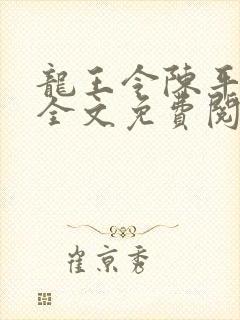 龍王令陳平
全文免費閱
崔京秀